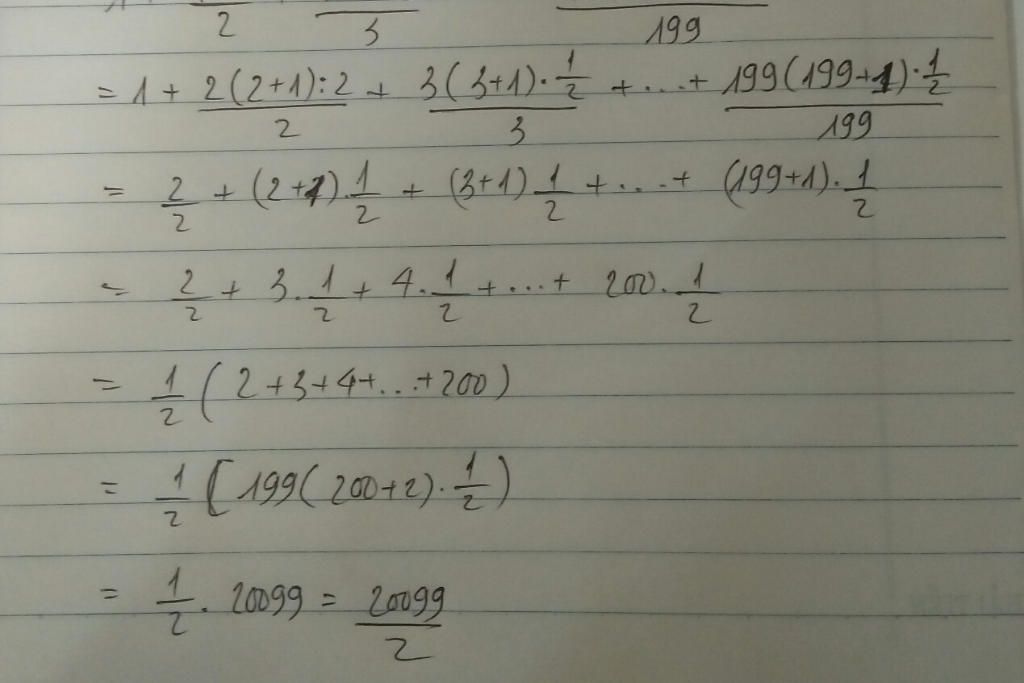 2 3 199
= 1 + \frac{2(2+1):2}{2} + \frac{3(3+1)·\frac{1}{2}}{3} + ... + \frac{199(199+1)·\frac{1}{2}}{199}
= \frac{2}{2} + (2+1)·\frac{1}{2} + (3+1)\frac{1}{2} + ... + (199+1)·\frac{1}{2}
= \frac{2}{2} + 3·\frac{1}{2} + 4·\frac{1}{2} + ... + 200·\frac{1}{2}
= \frac{1}{2} ( 2+3+4+...+200 )
= \frac{1}{2} [ 199( 200+2)·\frac{1}{2} )
= \frac{1}{2} · 20099 = \frac{20099}{2}